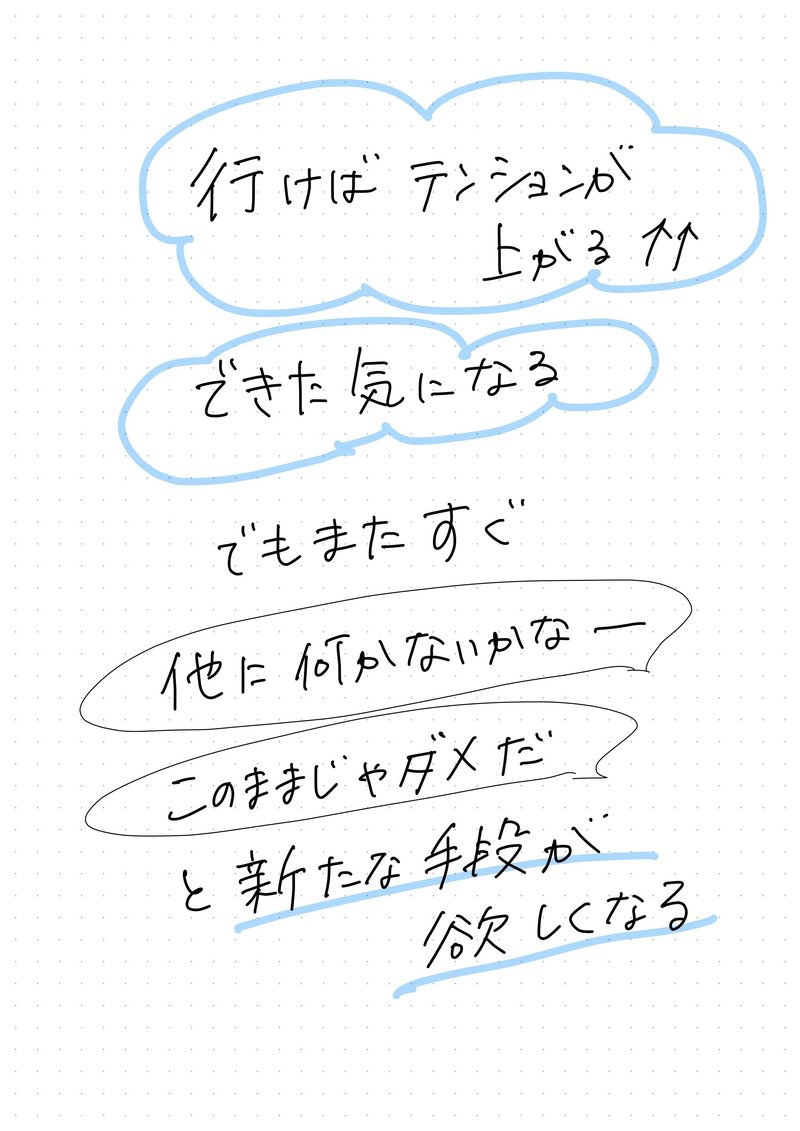 行けばテンションが
上がる↑↑
できた気になる
でもまたすぐ
他に何かないかなー
このままじゃダメだ
と新たな手段が
欲しくなる